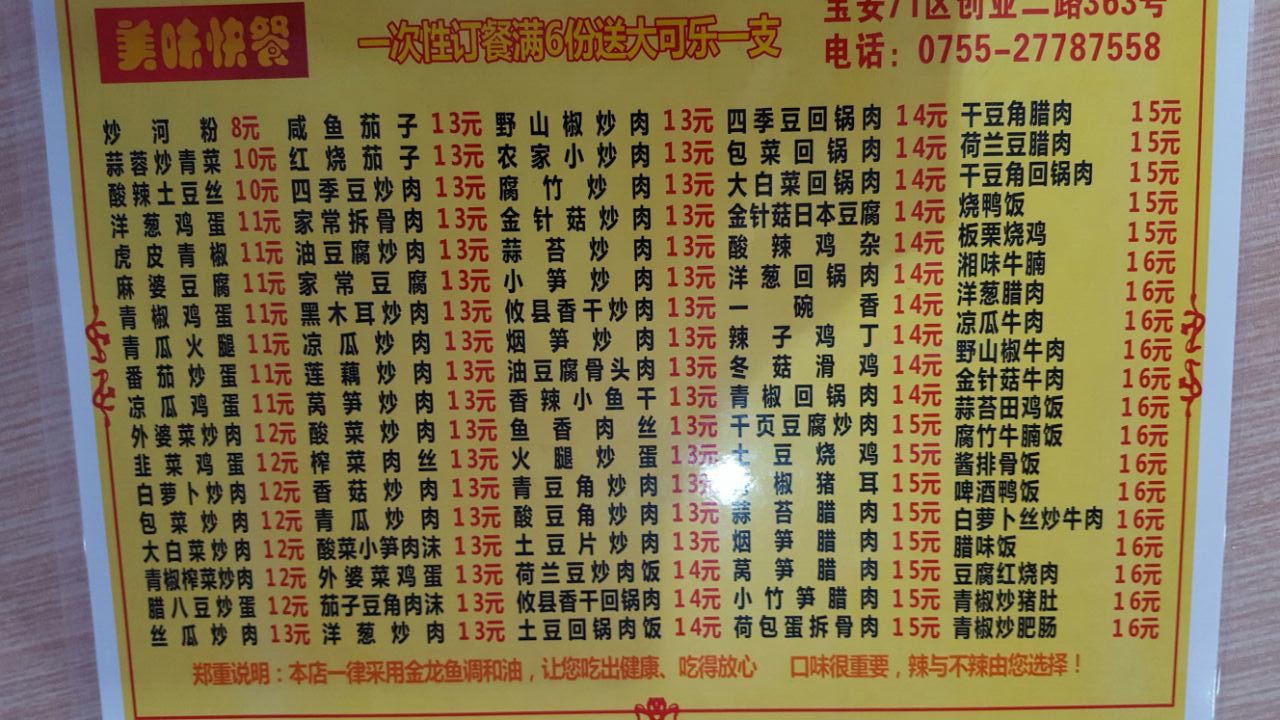 美味快餐
一次性订餐满6份送大可乐一支
宝安71区创业二路363号
电话：0755-27787558
炒河粉 8元
蒜蓉炒青菜 10元
酸辣土豆丝 10元
洋葱鸡蛋 11元
虎皮青椒 11元
麻婆豆腐 11元
青椒鸡蛋 11元
青瓜火腿 11元
番茄炒蛋 11元
凉瓜鸡蛋 11元
外婆菜炒肉 12元
韭菜鸡蛋 12元
白萝卜炒肉 12元
包菜炒肉 12元
大白菜炒肉 12元
青椒榨菜炒肉 12元
腊八豆炒蛋 12元
丝瓜炒肉 13元
咸鱼茄子 13元
红烧茄子 13元
四季豆炒肉 13元
家常拆骨肉 13元
油豆腐炒肉 13元
家常豆腐 13元
黑木耳炒肉 13元
凉瓜炒肉 13元
莲藕炒肉 13元
莴笋炒肉 13元
酸菜炒肉 13元
榨菜肉丝 13元
香菇炒肉 13元
青瓜炒肉 13元
酸菜小笋肉沫 13元
外婆菜鸡蛋 13元
茄子豆角肉沫 13元
洋葱炒肉 13元
野山椒炒肉 13元
农家小炒肉 13元
腐竹炒肉 13元
金针菇炒肉 13元
蒜苔炒肉 13元
小笋炒肉 13元
攸县香干炒肉 13元
烟笋炒肉 13元
油豆腐骨头肉 13元
香辣小鱼干 13元
鱼香肉丝 13元
火腿炒蛋 13元
青豆角炒肉 13元
酸豆角炒肉 13元
土豆片炒肉 13元
荷兰豆炒肉饭 14元
攸县香干回锅肉 14元
土豆回锅肉饭 14元
四季豆回锅肉 14元
包菜回锅肉 14元
大白菜回锅肉 14元
金针菇日本豆腐 14元
酸辣鸡杂 14元
洋葱回锅肉 14元
一碗香 14元
辣子鸡丁 14元
冬菇滑鸡 14元
青椒回锅肉 14元
千页豆腐炒肉 15元
土豆烧鸡 15元
椒猪耳 15元
蒜苔腊肉 15元
烟笋腊肉 15元
莴笋腊肉 15元
小竹笋腊肉 15元
荷包蛋拆骨肉 15元
干豆角腊肉 15元
荷兰豆腊肉 15元
干豆角回锅肉 15元
烧鸭饭 15元
板栗烧鸡 15元
湘味牛腩 16元
洋葱腊肉 16元
凉瓜牛肉 16元
野山椒牛肉 16元
金针菇牛肉 16元
蒜苔田鸡饭 16元
腐竹牛腩饭 16元
酱排骨饭 16元
啤酒鸭饭 16元
白萝卜丝炒牛肉 16元
腊味饭 16元
豆腐红烧肉 16元
青椒炒猪肚 16元
青椒炒肥肠 16元
郑重说明：本店一律采用金龙鱼调和油，让您吃出健康、吃得放心 口味很重要，辣与不辣由您选择！